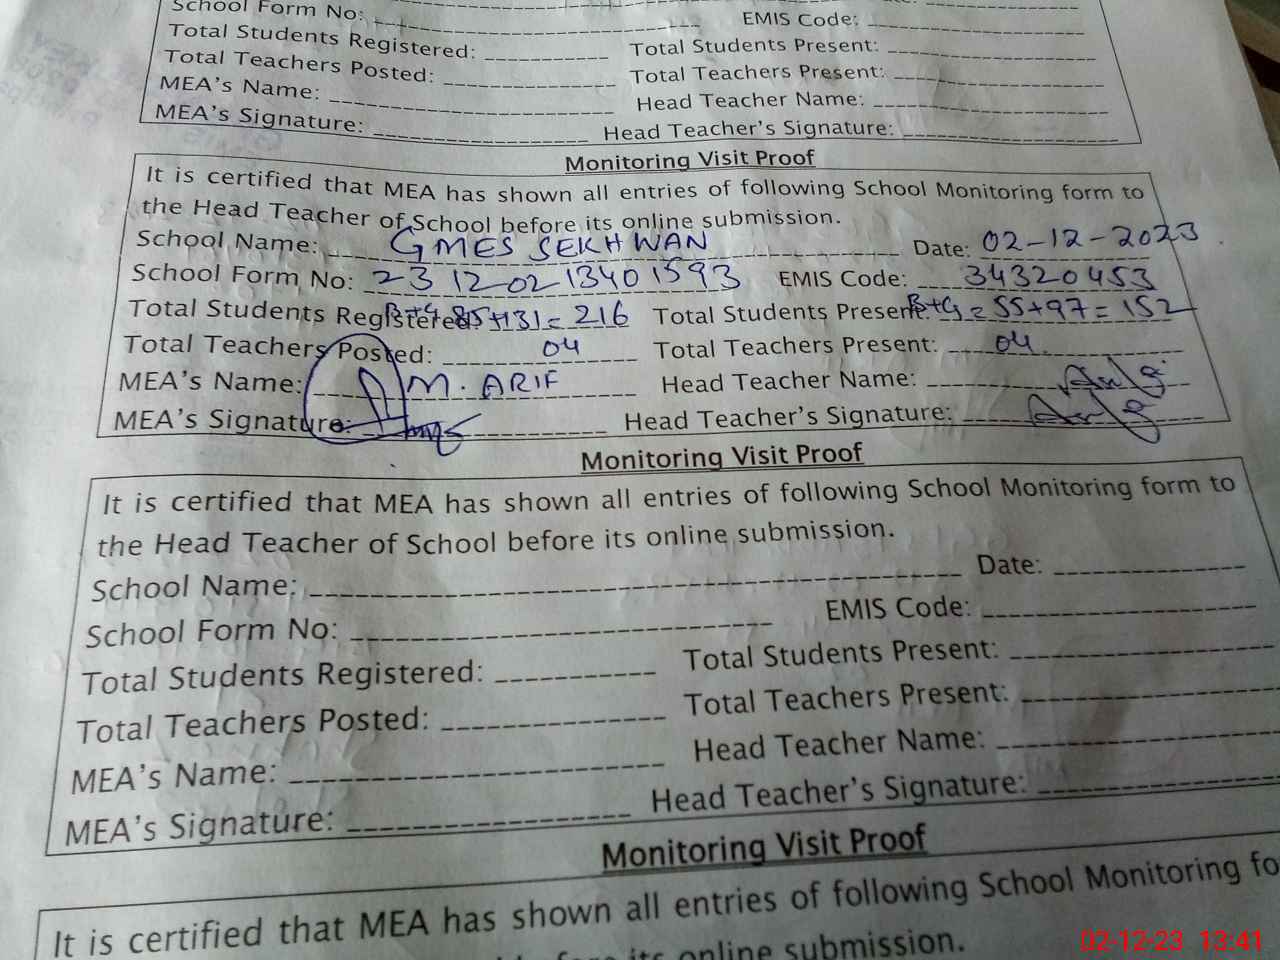 School Form No: ____________ EMIS Code: ____________
Total Students Registered: ____________ Total Students Present: ____________
Total Teachers Posted: ____________ Total Teachers Present: ____________
MEA's Name: ____________ Head Teacher Name: ____________
MEA's Signature: ____________ Head Teacher's Signature: ____________
Monitoring Visit Proof
It is certified that MEA has shown all entries of following School Monitoring form to
the Head Teacher of School before its online submission.
School Name: GMES SEKHWAN Date: 02-12-2023
School Form No: 2312021340 1593 EMIS Code: 34320453
Total Students Registered: B+G 85+131= 216 Total Students Present: B+G = 55+97 = 152
Total Teachers Posted: 04 Total Teachers Present: 04
MEA's Name: M. ARIF Head Teacher Name:
MEA's Signature: Head Teacher's Signature:
Monitoring Visit Proof
It is certified that MEA has shown all entries of following School Monitoring form to
the Head Teacher of School before its online submission.
School Name: ____________ Date: ____________
School Form No: ____________ EMIS Code: ____________
Total Students Registered: ____________ Total Students Present: ____________
Total Teachers Posted: ____________ Total Teachers Present: ____________
MEA's Name: ____________ Head Teacher Name: ____________
MEA's Signature: ____________ Head Teacher's Signature: ____________
Monitoring Visit Proof
It is certified that MEA has shown all entries of following School Monitoring fo
its online submission.
02-12-23 13:41